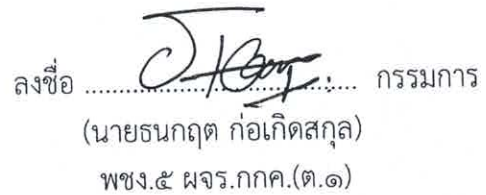 ลงชื่อ ........................................ กรรมการ
(นายธนกฤต ก่อเกิดสกุล)
พชง.๕ ผจร.กกค.(ต.๑)